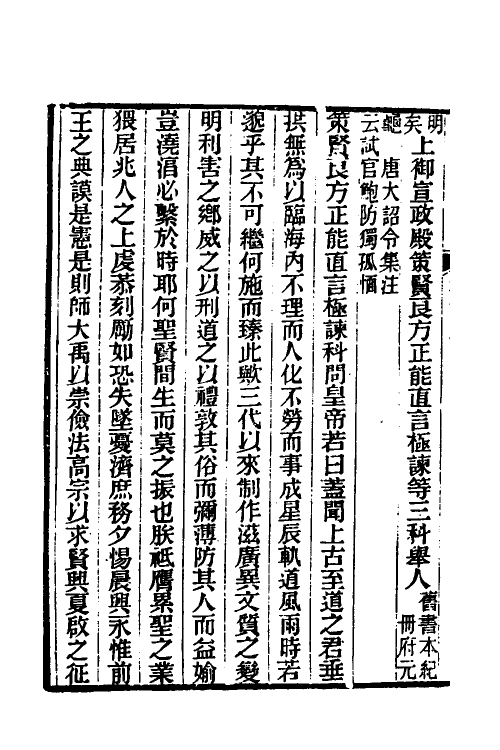 明矣上御宣政殿策賢良方正能直言極諫等三科舉人舊書本紀冊府元
龜 唐大詔令集注云試官鮑防獨孤愐
策賢良方正能直言極諫科問皇帝若曰蓋聞上古至道之君垂
拱無為以臨海內不理而人化不勞而事成星辰軌道風雨時若
邈乎其不可繼何施而臻此歟三代以來制作滋廣異文質之變
明利害之鄉威之以刑道之以禮敦其俗而彌薄防其人而益媮
豈澆滔必繫於時耶何聖賢間生而莫之振也朕祗膺累聖之業
猥居兆人之上虔恭刻勵如恐失墜憂濟庶務夕惕晨興永惟前
王之典謨是憲是則師大禹以崇儉法高宗以求賢興夏啟之征